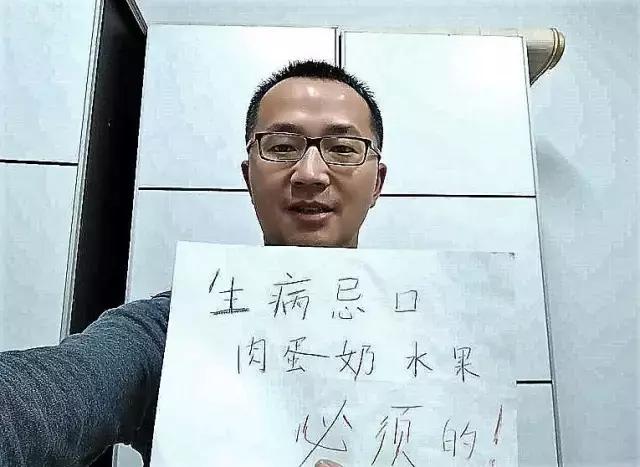 生病忌口
肉蛋奶水果
必须的!